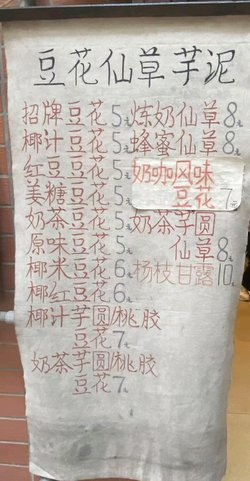 豆花仙草芋泥
招牌豆花5元
椰汁豆花5元
红豆豆花5元
姜糖豆花5元
奶茶豆花5元
原味豆花5元
椰米豆花6元
椰红豆花6元
椰汁芋圆/桃胶
豆花7元
奶茶芋圆/桃胶
豆花7元
炼奶仙草8元
蜂蜜仙草8元
奶咖风味
豆花7元
奶茶芋圆
仙草8元
杨枝甘露10元